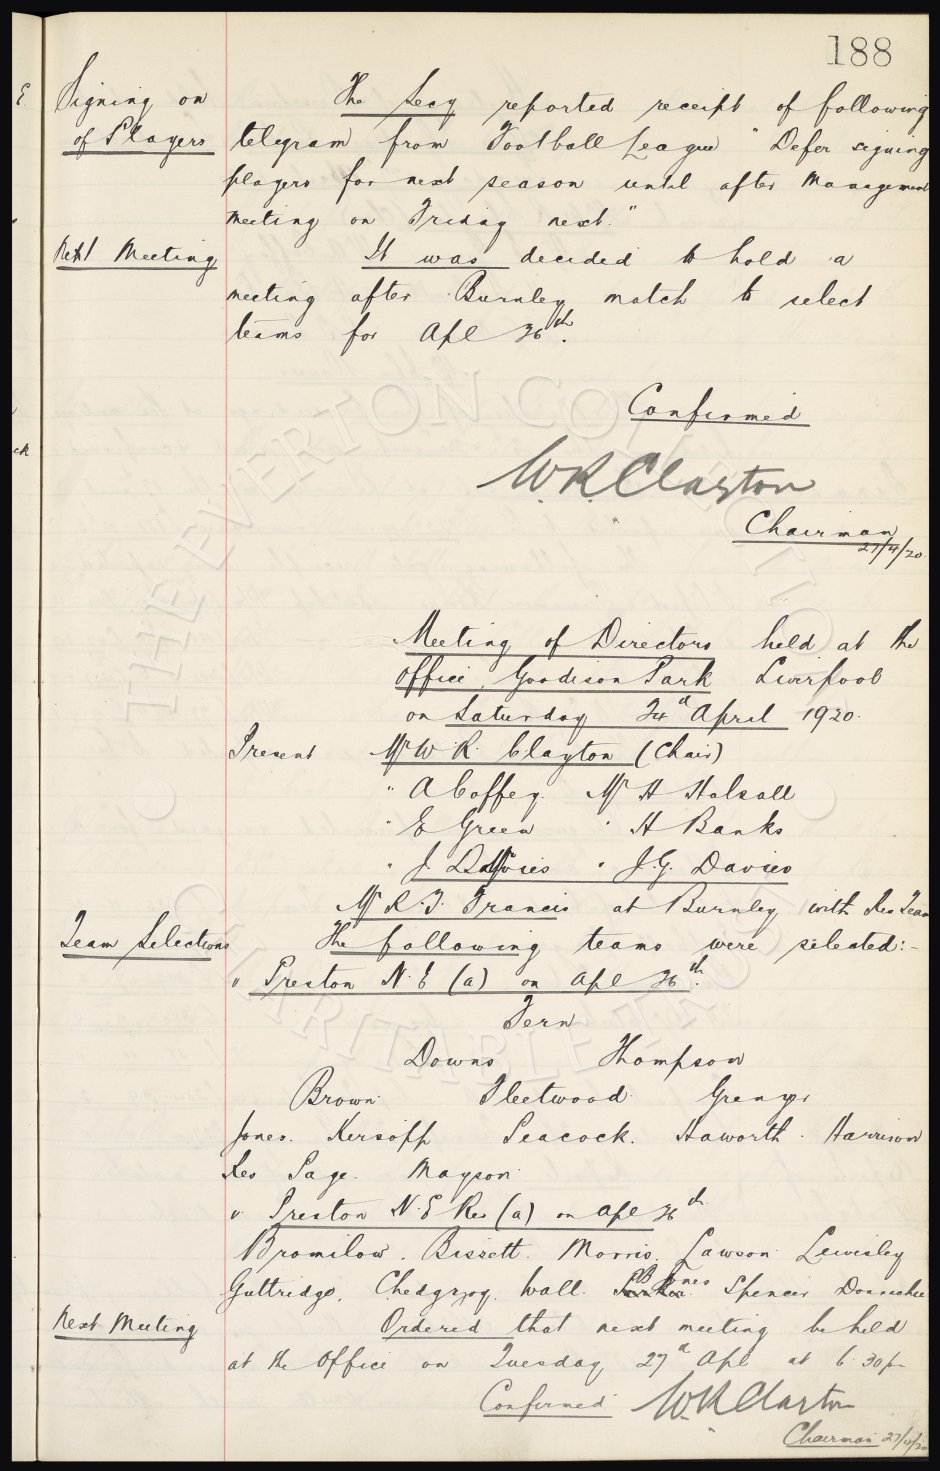 188
Signing on
of Players
The Secy reported receipt of following
telegram from Football League "Defer signing
players for next season until after Management
meeting on Friday next."
Next Meeting
It was decided to hold a
meeting after Burnley match to select
teams for Apl 26th.
Confirmed
W.R. Clayton
Chairman
27/4/20
Meeting of Directors held at the
Office, Goodison Park Liverpool
on Saturday 24th April 1920.
Present Mr W.R. Clayton (Chair)
" A Coffey. Mr H Halsall
" E Green " H Banks
" J. Davies " J.G. Davies
Mr R.T. Francis at Burnley with Res Team
Team Selections
The following teams were selected:-
v Preston N.E (a) on Apl 26th.
Fern
Downs Thompson
Brown Fleetwood Grenyer
Jones. Kirsopp Peacock. Haworth. Harrison
Res Page. Mayson
v. Preston N.E Res (a) on Apl 26th
Bromilow. Bissett. Morris. Lawson Lewisley
Guttridge. Chedgzoy. Wall. B Jones Spencer Donnachie
Next Meeting
Ordered that next meeting be held
at the Office on Tuesday 27th Apl at 6.30 p-
Confirmed W.R Clayton
Chairman 27/4/20
© THE EVERTON COLLECTION CHARITABLE TRUST